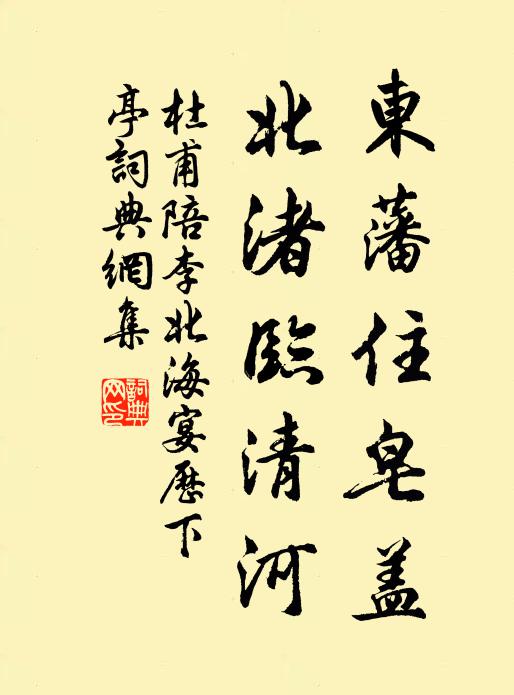 東藩住皂盖
北渚臨清河
杜甫陪李北海宴歷下
亭詞典網集
詞典
网印